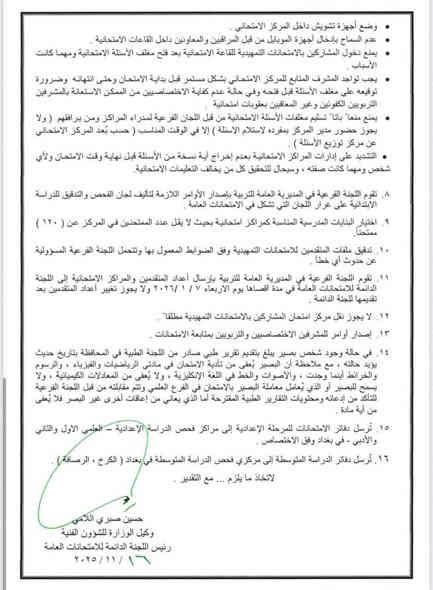 • وضع أجهزة تشويش داخل المركز الامتحاني .
• عدم السماح بإدخال أجهزة الموبايل من قبل المراقبين والمعاونين داخل القاعات الامتحانية .
• يمنع دخول المشاركين بالامتحانات التمهيدية للقاعة الامتحانية بعد فتح مغلف الأسئلة الامتحانية ومهما كانت
الأسباب .
• يجب تواجد المشرف المتابع للمركز الامتحاني بشكل مستمر قبل بداية الامتحان وحتى انتهائه وضرورة
توقيعه على مغلف الأسئلة قبل فتحه وفي حالة عدم كفاية الاختصاصيين من الممكن الاستعانة بالمشرفين
التربويين الكفوئين وغير المعاقبين بعقوبات امتحانية .
• يمنع منعاً باتاً تسليم مغلفات الأسئلة الامتحانية من قبل اللجان الفرعية لمدراء المراكز ومن يرافقهم ( ولا
يجوز حضور مدير المركز بمفرده لاستلام الأسئلة ) إلا في الوقت المناسب ( حسب بُعد المركز الامتحاني
عن مركز توزيع الأسئلة ) .
• التشديد على إدارات المراكز الامتحانية بعدم إخراج أية نسخة من الأسئلة قبل نهاية وقت الامتحان ولأي
شخص ومهما كانت صفته ، وسيحال للتحقيق كل من يخالف التعليمات الامتحانية.
٨. تقوم اللجنة الفرعية في المديرية العامة للتربية بإصدار الأوامر اللازمة لتأليف لجان الفحص والتدقيق للدراسة
الابتدائية على غرار اللجان التي تشكل في الامتحانات العامة.
٩. اختيار البنايات المدرسية المناسبة كمراكز امتحانية بحيث لا يقل عدد الممتحنين في المركز عن ( ١٢٠ )
ممتحناً.
١٠. تدقيق ملفات المتقدمين للامتحانات التمهيدية وفق الضوابط المعمول بها وتتحمل اللجنة الفرعية المسؤولية
عن حدوث أي خطأ .
١١. تقوم اللجنة الفرعية في المديرية العامة للتربية بإرسال أعداد المتقدمين والمراكز الامتحانية إلى اللجنة
الدائمة للامتحانات العامة في مدة اقصاها يوم الاربعاء ٢٠٢٦/١/٧ ولا يجوز تغيير أعداد المتقدمين بعد
تقديمها للجنة الدائمة .
١٢. لا يجوز نقل مركز امتحان المشاركين بالامتحانات التمهيدية مطلقاً.
١٣. إصدار أوامر للمشرفين الاختصاصيين والتربويين بمتابعة الامتحانات .
١٤. في حالة وجود شخص بصير يبلغ بتقديم تقرير طبي صادر من اللجنة الطبية في المحافظة بتاريخ حديث
يؤيد حالته ، مع ملاحظة أن البصير يُعفى من تأدية الامتحان في مادتي الرياضيات والفيزياء ، والرسوم
والخرائط أينما وجدت ، والأصوات والخط في اللغة الإنكليزية ، ولا يُعفى من المعادلات الكيميائية ، ولا
يسمح للبصير أو الذي يُعامل معاملة البصير بالامتحان في الفرع العلمي وتتم مقابلته من قبل اللجنة الفرعية
للتأكد من إدعائه ومحتويات التقارير الطبية المقترحة أما الذي يعاني من إعاقات أخرى غير البصر فلا يُعفى
من أية مادة .
١٥. تُرسل دفاتر الامتحانات للمرحلة الإعدادية إلى مراكز فحص الدراسة الإعدادية – العلمي الاول والثاني
والأدبي - في بغداد وفق الاختصاص .
١٦. تُرسل دفاتر الدراسة المتوسطة إلى مركزي فحص الدراسة المتوسطة في بغداد ( الكرخ ، الرصافة ) .
لاتخاذ ما يلزم ... مع التقدير .
حسين صبري اللامي
وكيل الوزارة للشؤون الفنية
رئيس اللجنة الدائمة للامتحانات العامة
٢٠٢٥/١١/١٦